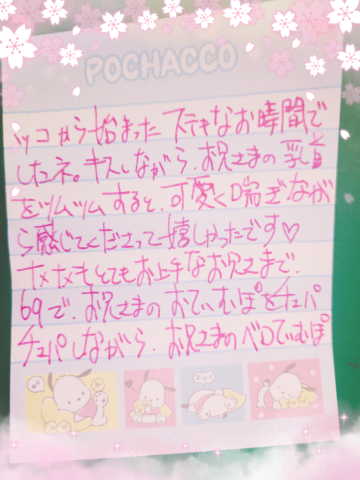 POCHACCO
ベッコから始まったステキなお時間で
したネ。キスしながら、お兄さまの乳首
をツムツムすると、可愛く喘ぎなが
ら感じてくださって嬉しかったです♡
ナメナメもとてもお上手なお兄さまで、
69で、お兄さまのおてぃむぽをチュパ
チュパしながら、お兄さまのベロてぃむぽ